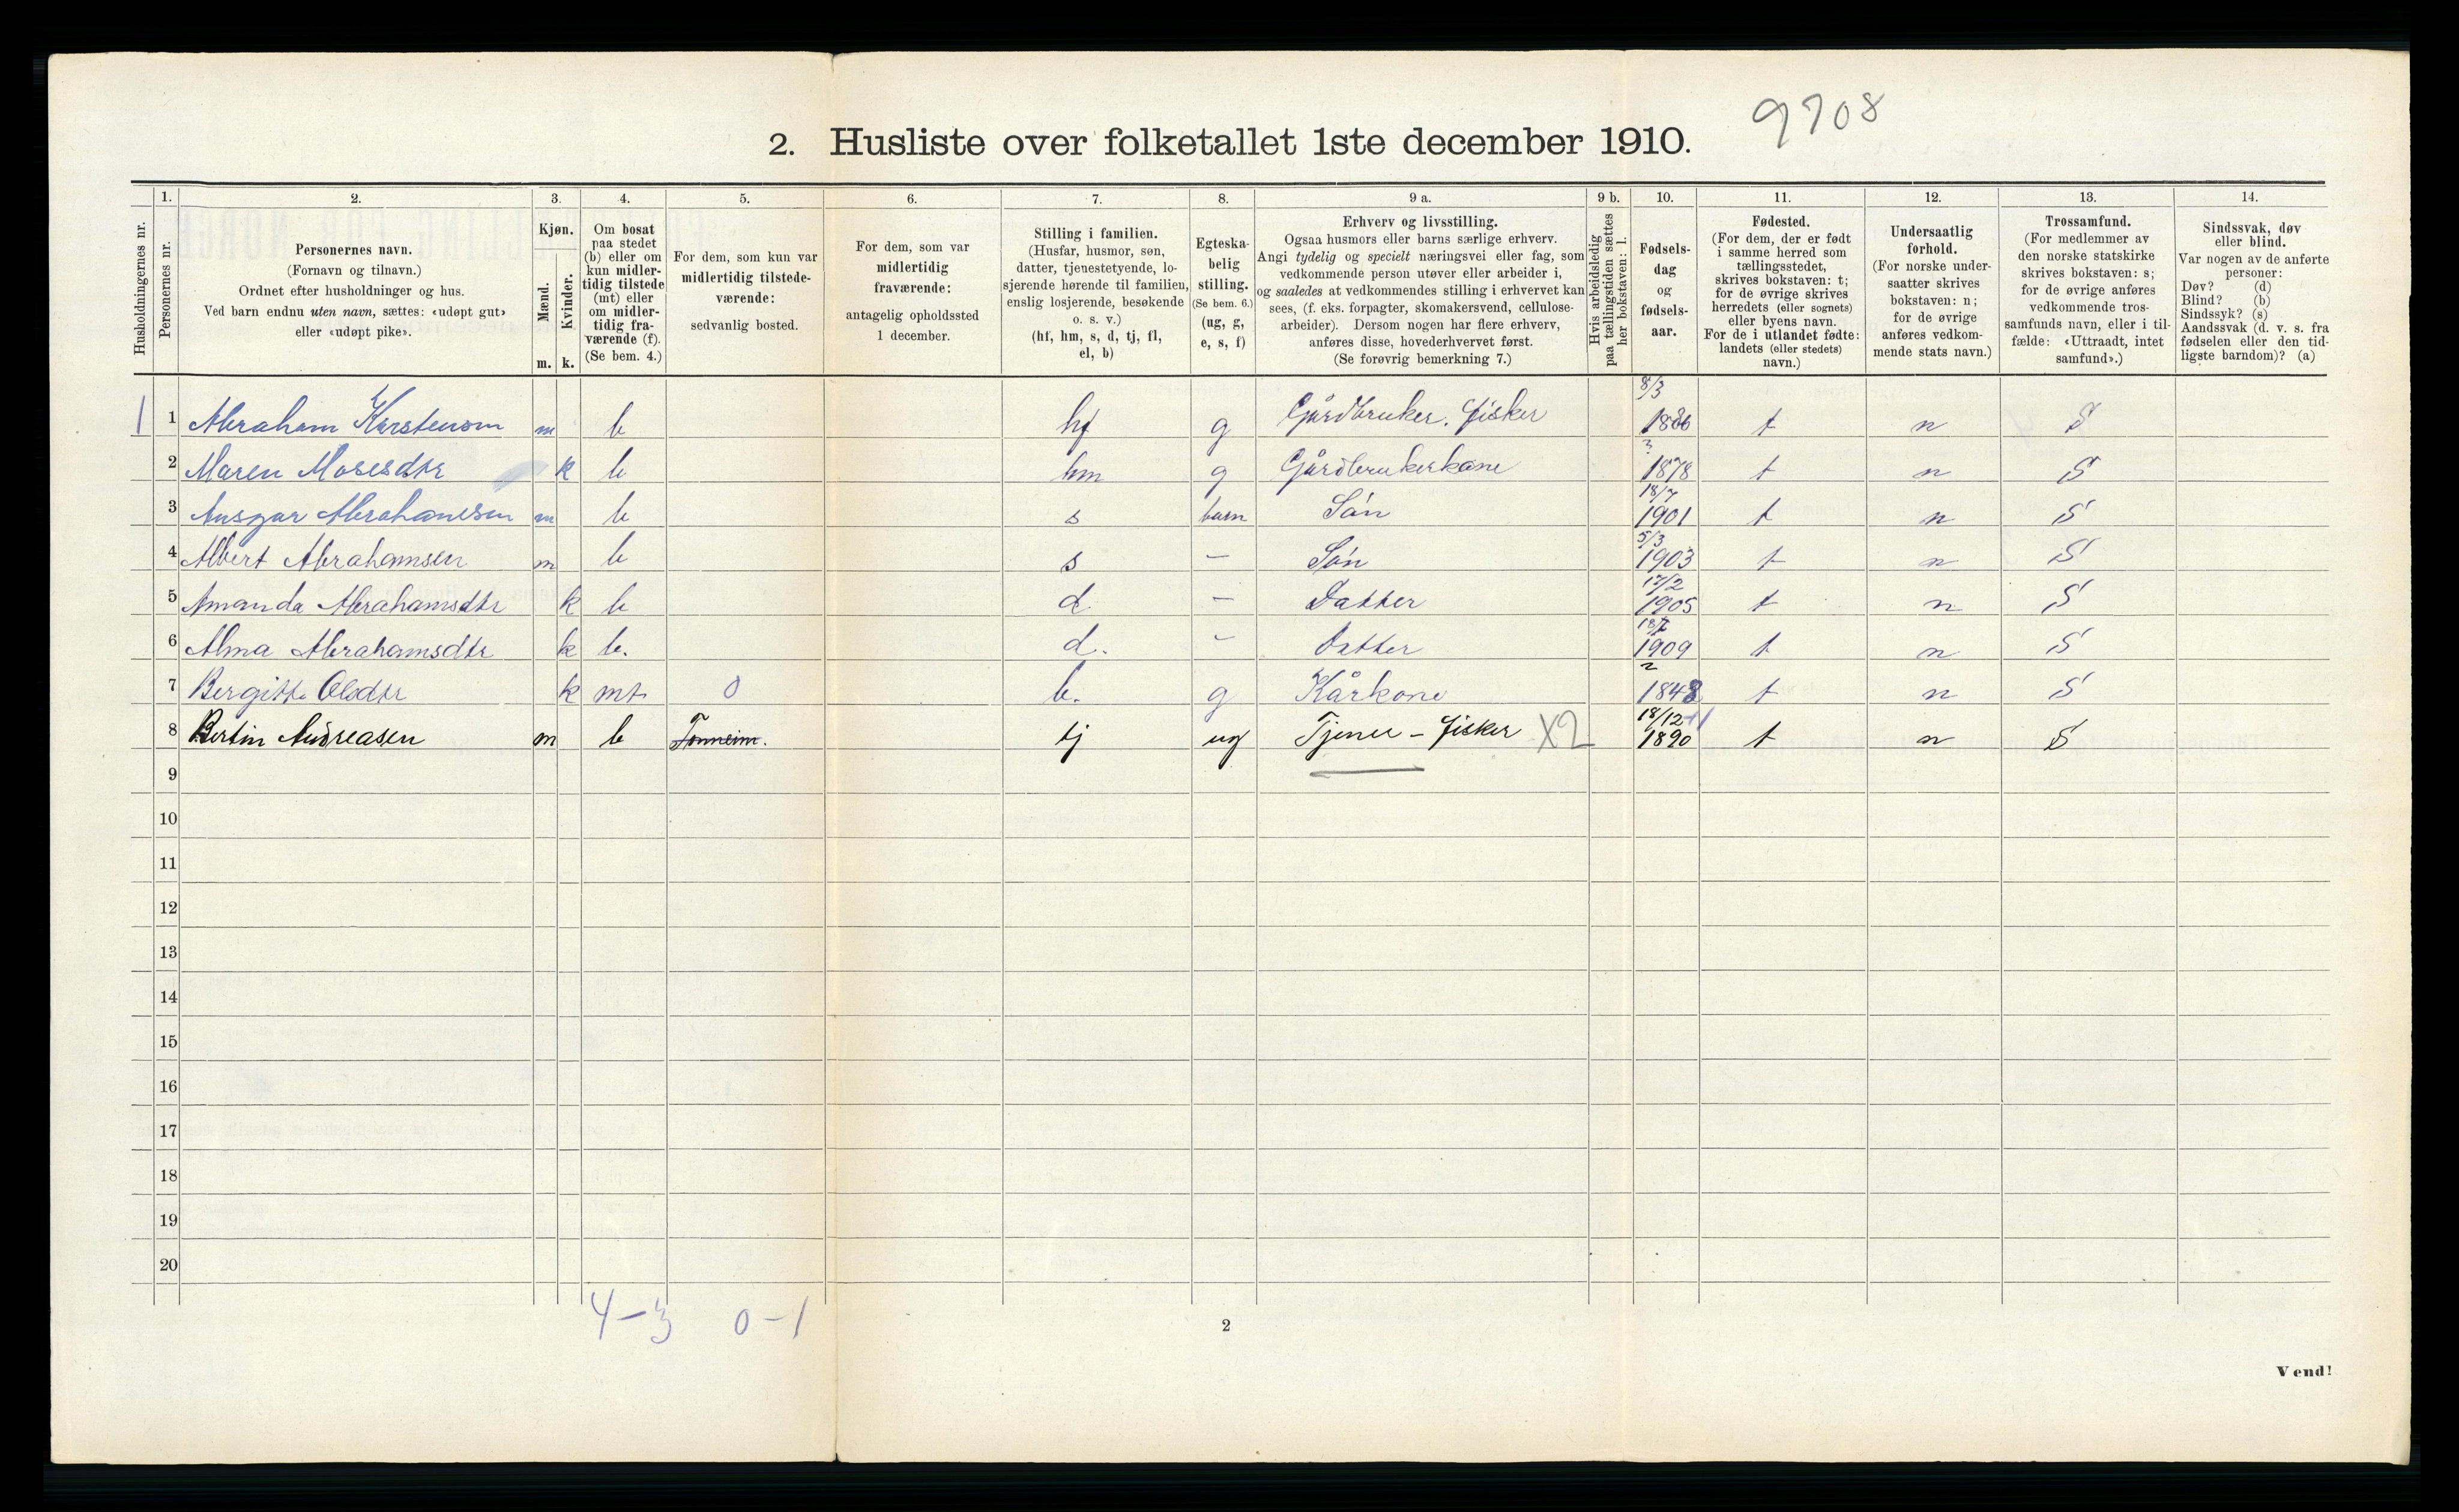 9708
2. Husliste over folketallet 1ste december 1910.
Husholdningernes nr.
1. Personernes nr.
2. Personernes navn.
(Fornavn og tilnavn.)
Ordnet efter husholdninger og hus.
Ved barn endnu uten navn, sættes: «udøpt gut»
eller «udøpt pike».
3. Kjøn.
Mænd. m.
Kvinder. k.
4. Om bosat
paa stedet
(b) eller om
kun midler-
tidig tilstede
(mt) eller
om midler-
tidig fra-
værende (f).
(Se bem. 4.)
5. For dem, som kun var
midlertidig tilstede-
værende:
sedvanlig bosted.
6. For dem, som var
midlertidig
fraværende:
antagelig opholdssted
1 december.
7. Stilling i familien.
(Husfar, husmor, søn,
datter, tjenestetyende, lo-
sjerende hørende til familien,
enslig losjerende, besøkende
o. s. v.)
(hf, hm, s, d, tj, fl,
el, b)
8. Egteska-
belig
stilling.
(Se bem. 6.)
(ug, g,
e, s, f)
9 a. Erhverv og livsstilling.
Ogsaa husmors eller barns særlige erhverv.
Angi tydelig og specielt næringsvei eller fag, som
vedkommende person utøver eller arbeider i,
og saaledes at vedkommendes stilling i erhvervet kan
sees, (f. eks. forpagter, skomakersvend, cellulose-
arbeider). Dersom nogen har flere erhverv,
anføres disse, hovederhvervet først.
(Se forøvrig bemerkning 7.)
9 b. Hvis arbeidsledig
paa tællingstiden sættes
her bokstaven: l.
10. Fødsels-
dag
og
fødsels-
aar.
11. Fødested.
(For dem, der er født
i samme herred som
tællingsstedet,
skrives bokstaven: t;
for de øvrige skrives
herredets (eller sognets)
eller byens navn.
For de i utlandet fødte:
landets (eller stedets)
navn.)
12. Undersaatlig
forhold.
(For norske under-
saatter skrives
bokstaven: n;
for de øvrige
anføres vedkom-
mende stats navn.)
13. Trossamfund.
(For medlemmer av
den norske statskirke
skrives bokstaven: s;
for de øvrige anføres
vedkommende tros-
samfunds navn, eller i til-
fælde: «Uttraadt, intet
samfund».)
14. Sindssvak, døv
eller blind.
Var nogen av de anførte
personer:
Døv? (d)
Blind? (b)
Sindssyk? (s)
Aandssvak (d. v. s. fra
fødselen eller den tid-
ligste barndom)? (a)
1 1 Abraham Karstensen m b hf g Gårdbruker. fisker 8/3 t n S
2 Maren Mosesdtr k b hm g Gårdbrukerkone ? 1878 t n S
3 Ansgar Abrahamsen m b s barn Søn 18/7 1901 t n S
4 Albert Abrahamsen m b s - Søn 5/3 1903 t n S
5 Amanda Abrahamsdtr k b d - Datter 17/2 1905 t n S
6 Alma Abrahamsdtr k b. d. - Datter 1909 t n S
7 Bergitte Olsdtr k mt 0 b. g Kårkone 1848 t n S
8 Bertin Andreasen m b tj ug Tjener - fisker X2 18/12 1890 t n S
9
10
11
12
13
14
15
16
17
18
19
20
4-3 0-1
2
Vend!